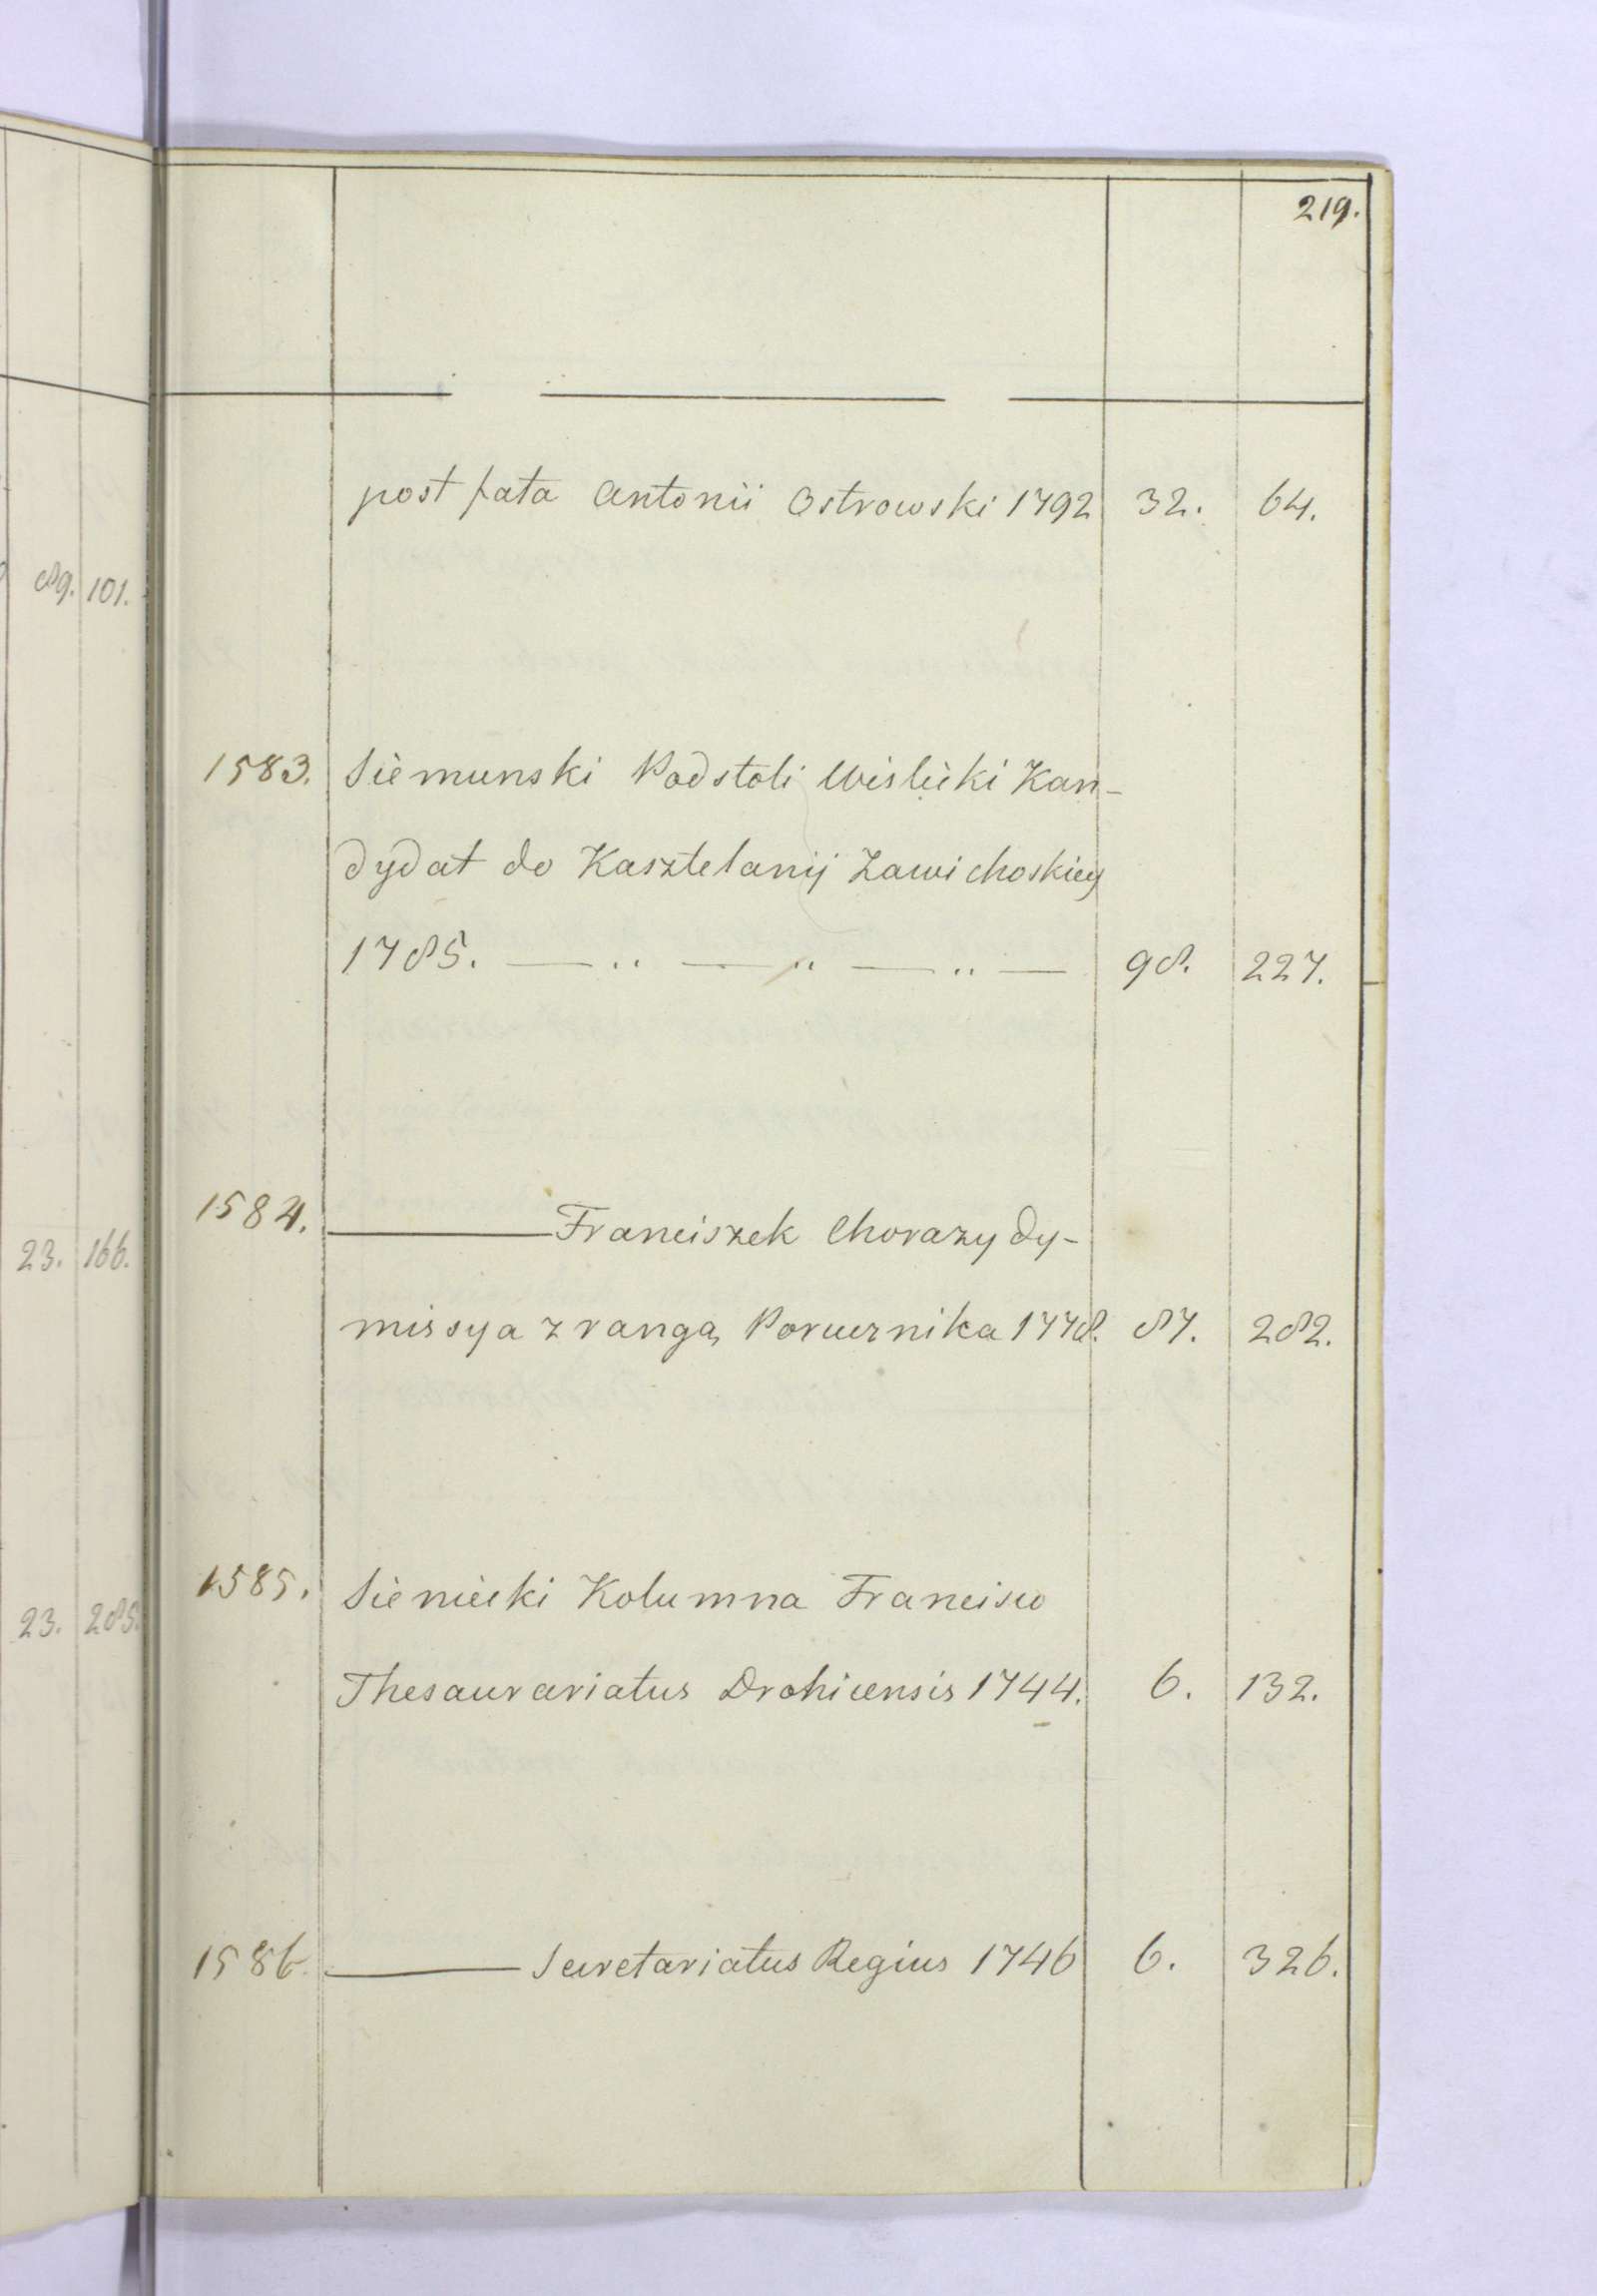 219.
post fata Antonii Ostrowski 1792 32. 64.
89. 101.
1583. Siemunski Podstoli Wislicki Kan-
dydat do Kasztelanij Zawichoskiey
1785. — .. — .. — .. — 98. 227.
1584. ——— Franciszek Chorązy dy-
missya z rangą Porucznika 1778. 87. 282.
23. 166.
1585. Sienicki Kolumna Francisco
Thesaurariatus Drohicensis 1744. 6. 132.
23. 285.
1586. ——— Secretariatus Regius 1746 6. 326.